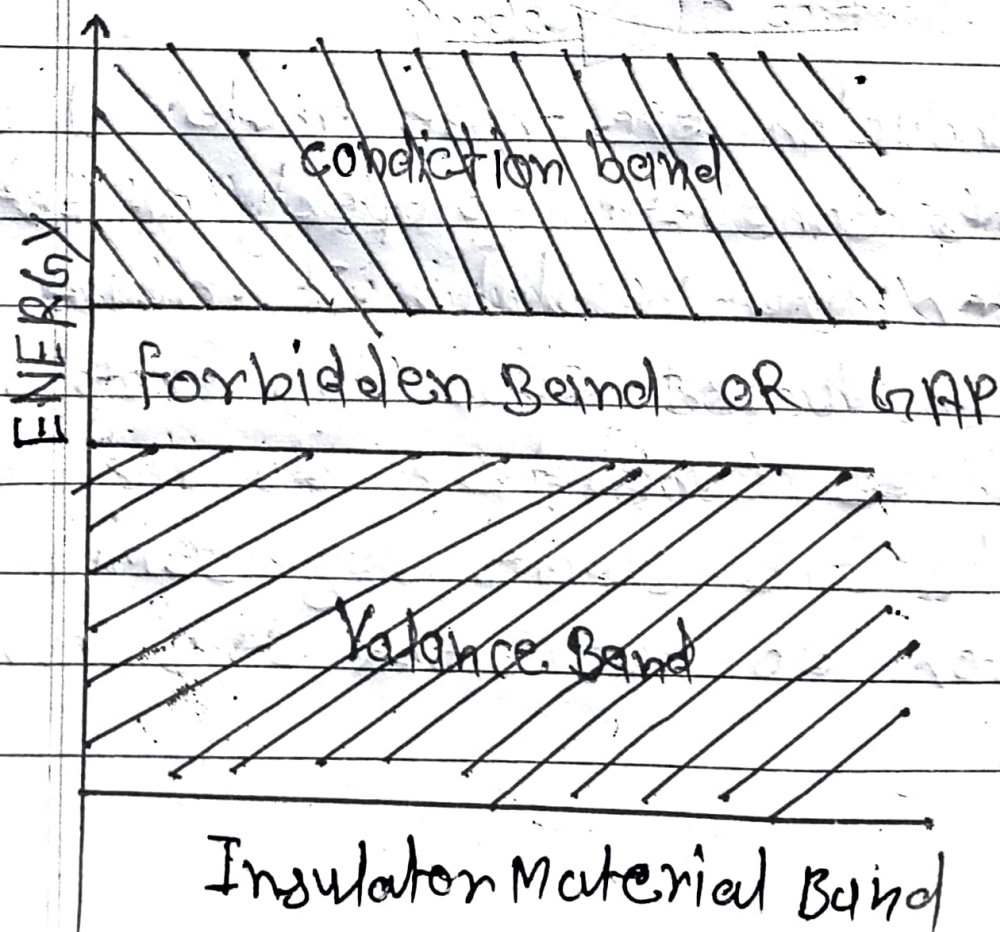 condiction band
ENERGY
Forbidden Band OR GAP
Valance Band
Insulator Material Band